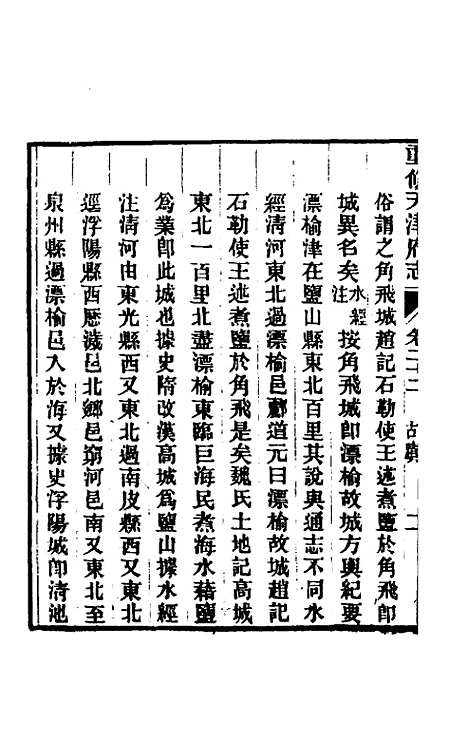 重修天津府志 卷二十二 古蹟
俗謂之角飛城趙記石勒使王述煮鹽於角飛即
城異名矣水經注按角飛城即漂榆故城方輿紀要
漂榆津在鹽山縣東北百里其說與通志不同水
經清河東北過漂榆邑酈道元曰漂榆故城趙記
石勒使王述煮鹽於角飛是矣魏氏土地記高城
東北一百里北盡漂榆東臨巨海民煮海水藉鹽
為業卽此城也據史隋改漢高城為鹽山據水經
注清河由東光縣西又東北過南皮縣西又東北
逕浮陽縣西歷濊邑北鄉邑窮河邑南又東北至
泉州縣過漂榆邑入於海又據史浮陽城即清池